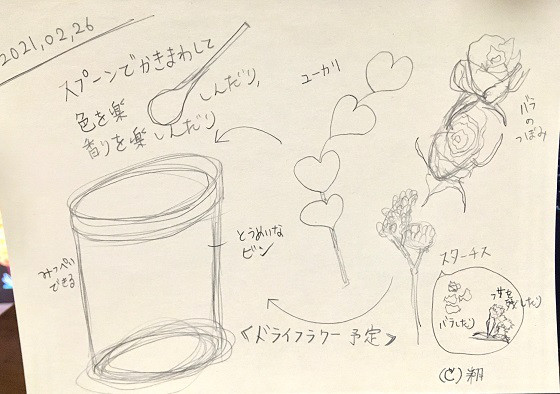 2021,02,26
スプーンでかきまわして
色を楽しんだり,
香りを楽しんだり
ユーカリ
バラ
の
つぼみ
みっぺい
できる
とうめいな
ビン
スターチス
バラしたり
フサを
残したり
<ドライフラワー予定>
(C)翔